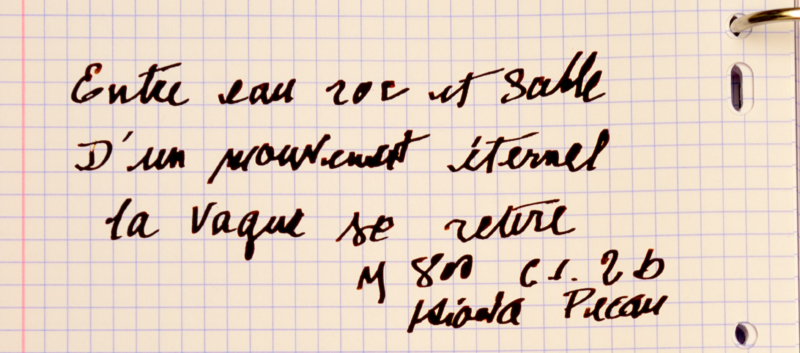 Entre eau roc et Sable
D'un mouvement éternel
la vague se retire
M 800 C I. 2 b
Pecan